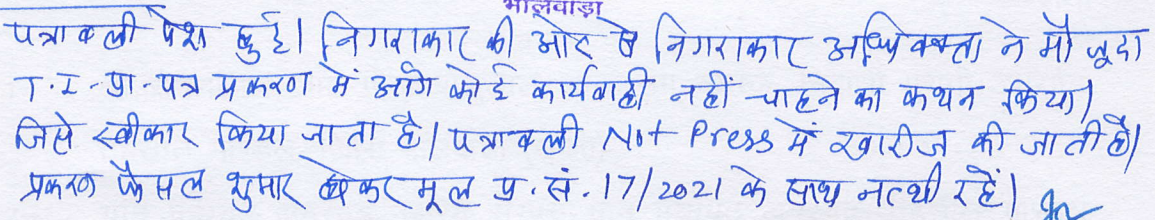 भीलवाड़ा
पत्रावली पेश हुई। निगराकार की ओर से निगराकार अधिवक्ता ने मौजूदा
T.I-प्रा.पत्र प्रकरण में आगे कोई कार्यवाही नहीं चाहने का कथन किया।
जिसे स्वीकार किया जाता है। पत्रावली Not Press में खारीज की जाती है।
प्रकरण फैसल शुमार होकर मूल प्र.सं.17/2021 के साथ नत्थी रहें।